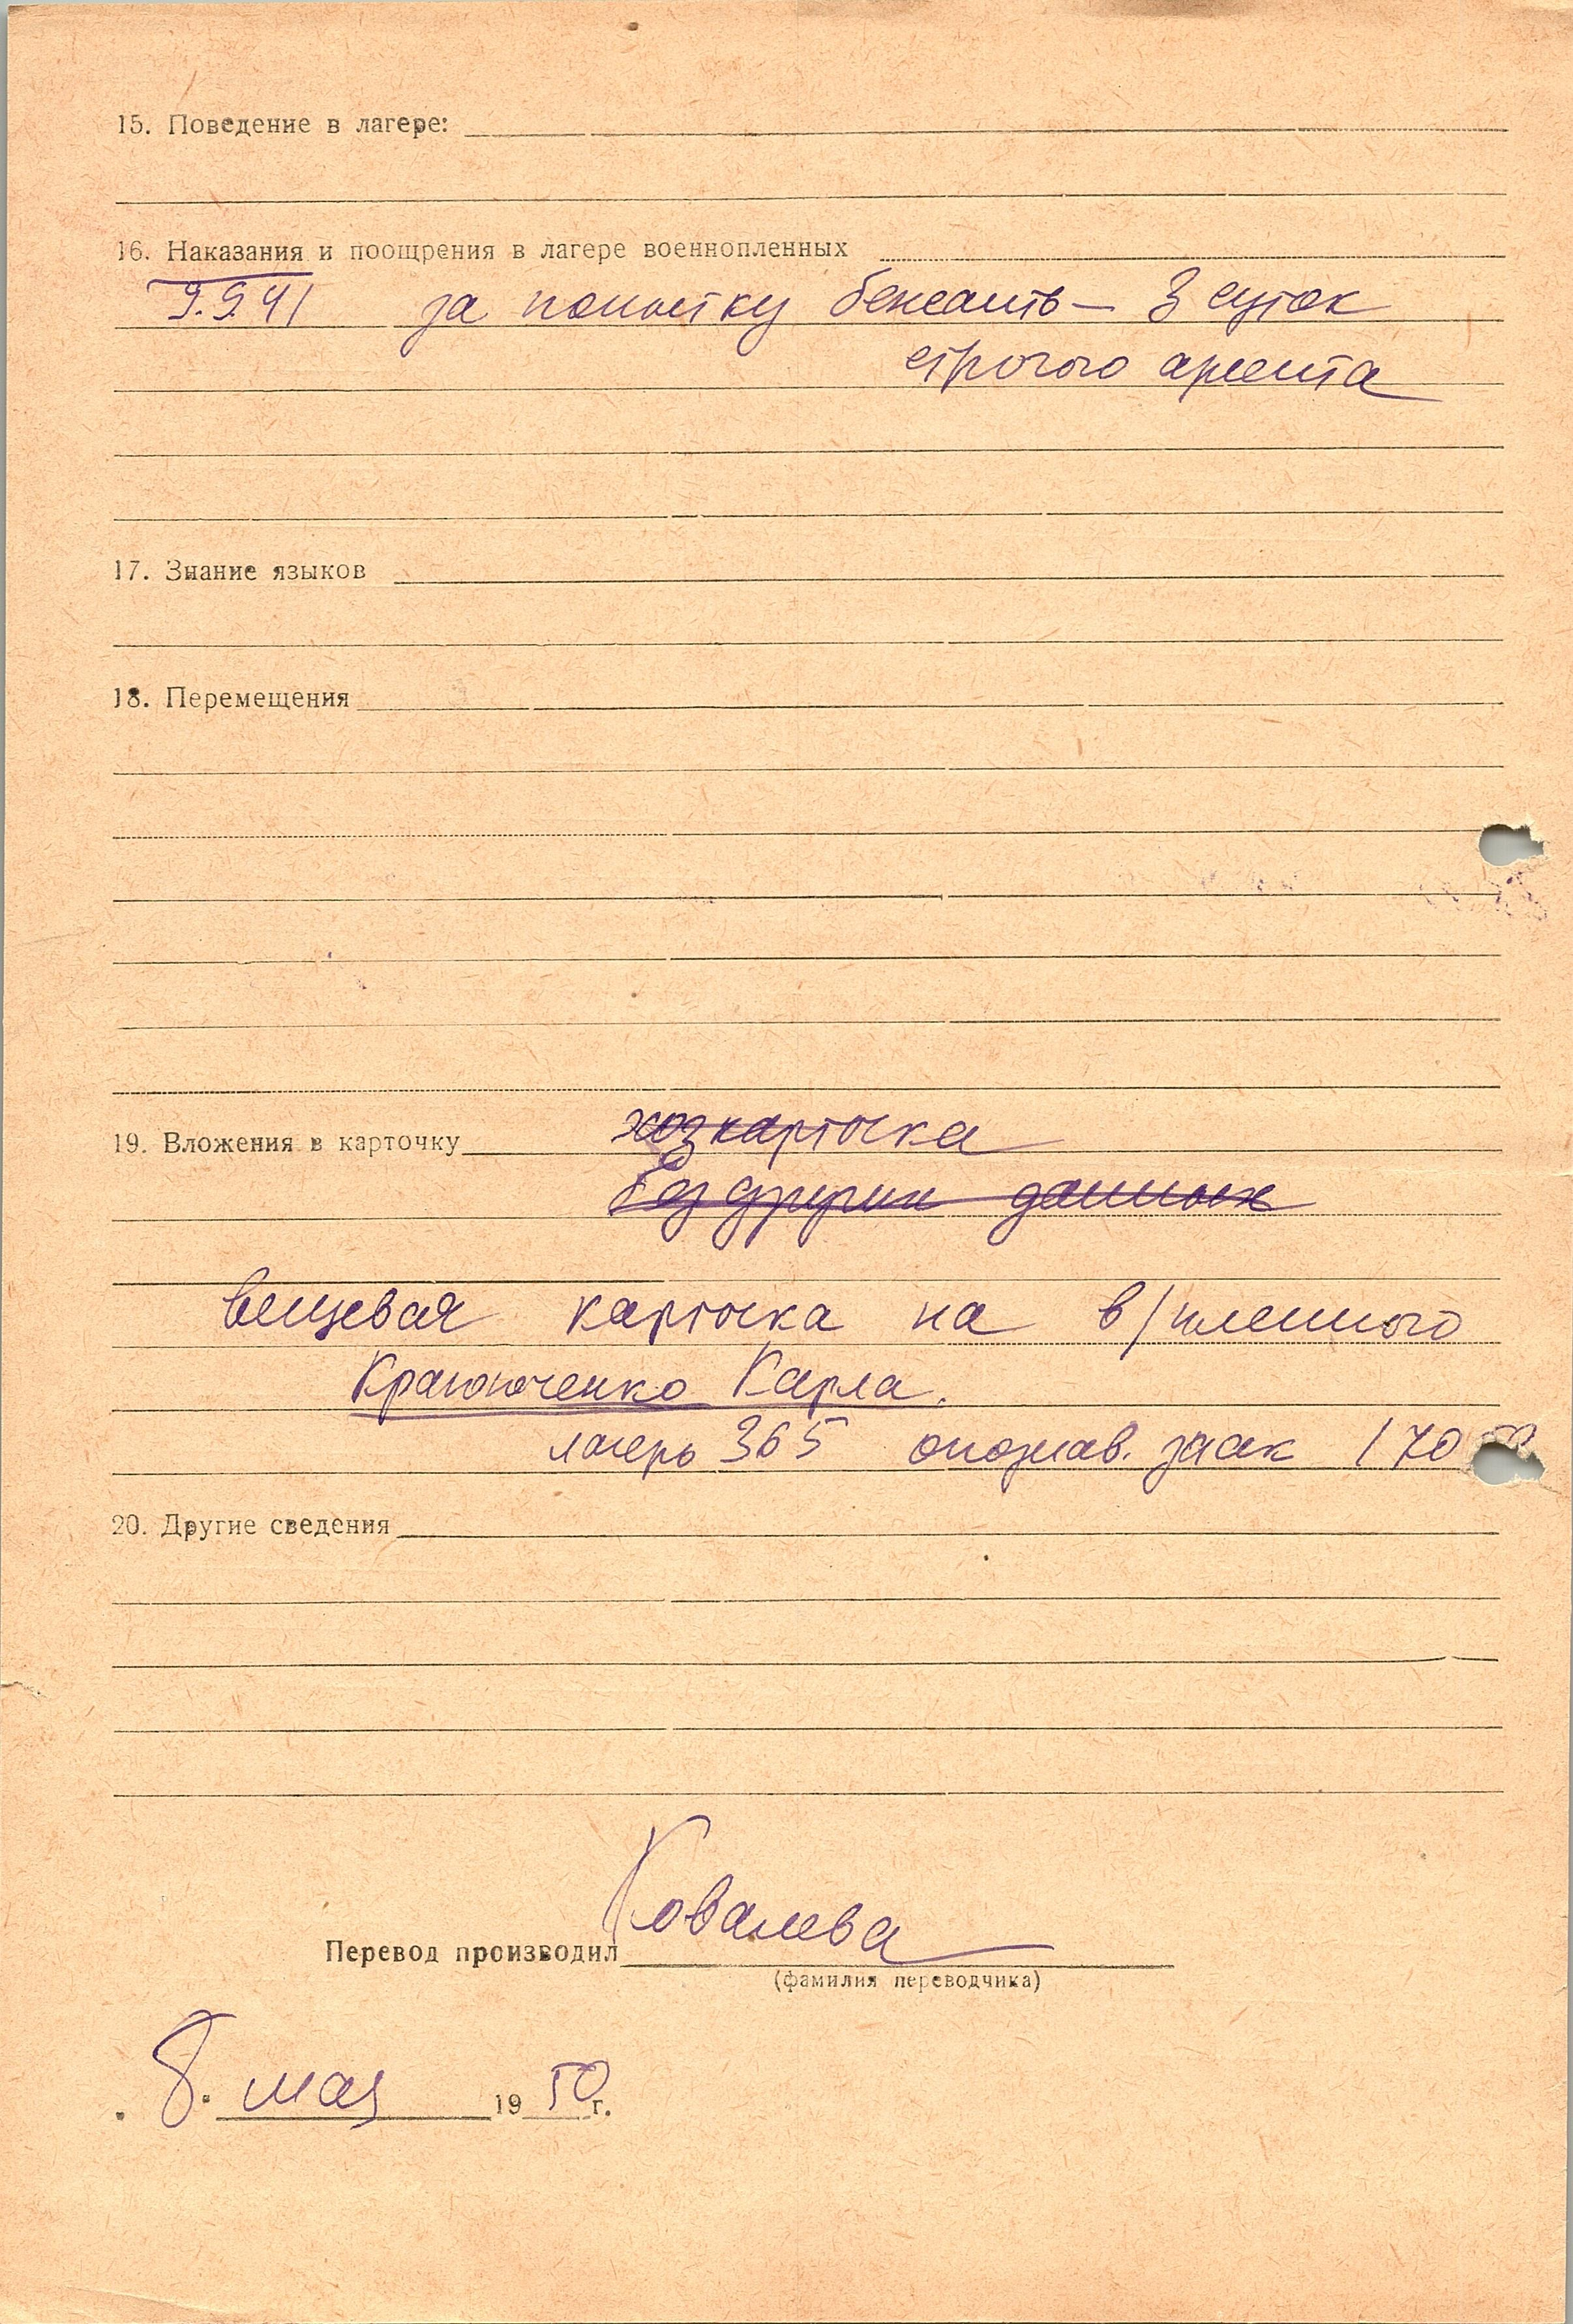 15. Поведение в лагере:
16. Наказания и поощрения в лагере военнопленных
9.9.41 за попытку бежать — 3 суток
строгого ареста
17. Знание языков
18. Перемещения
19. Вложения в карточку хозкарточка
без других данных
вещевая карточка на в/пленного
Карла.
лагерь 365 опознав. знак 170
20. Другие сведения
Ковалева
Перевод производил
(фамилия переводчика)
8. мая 1950 г.